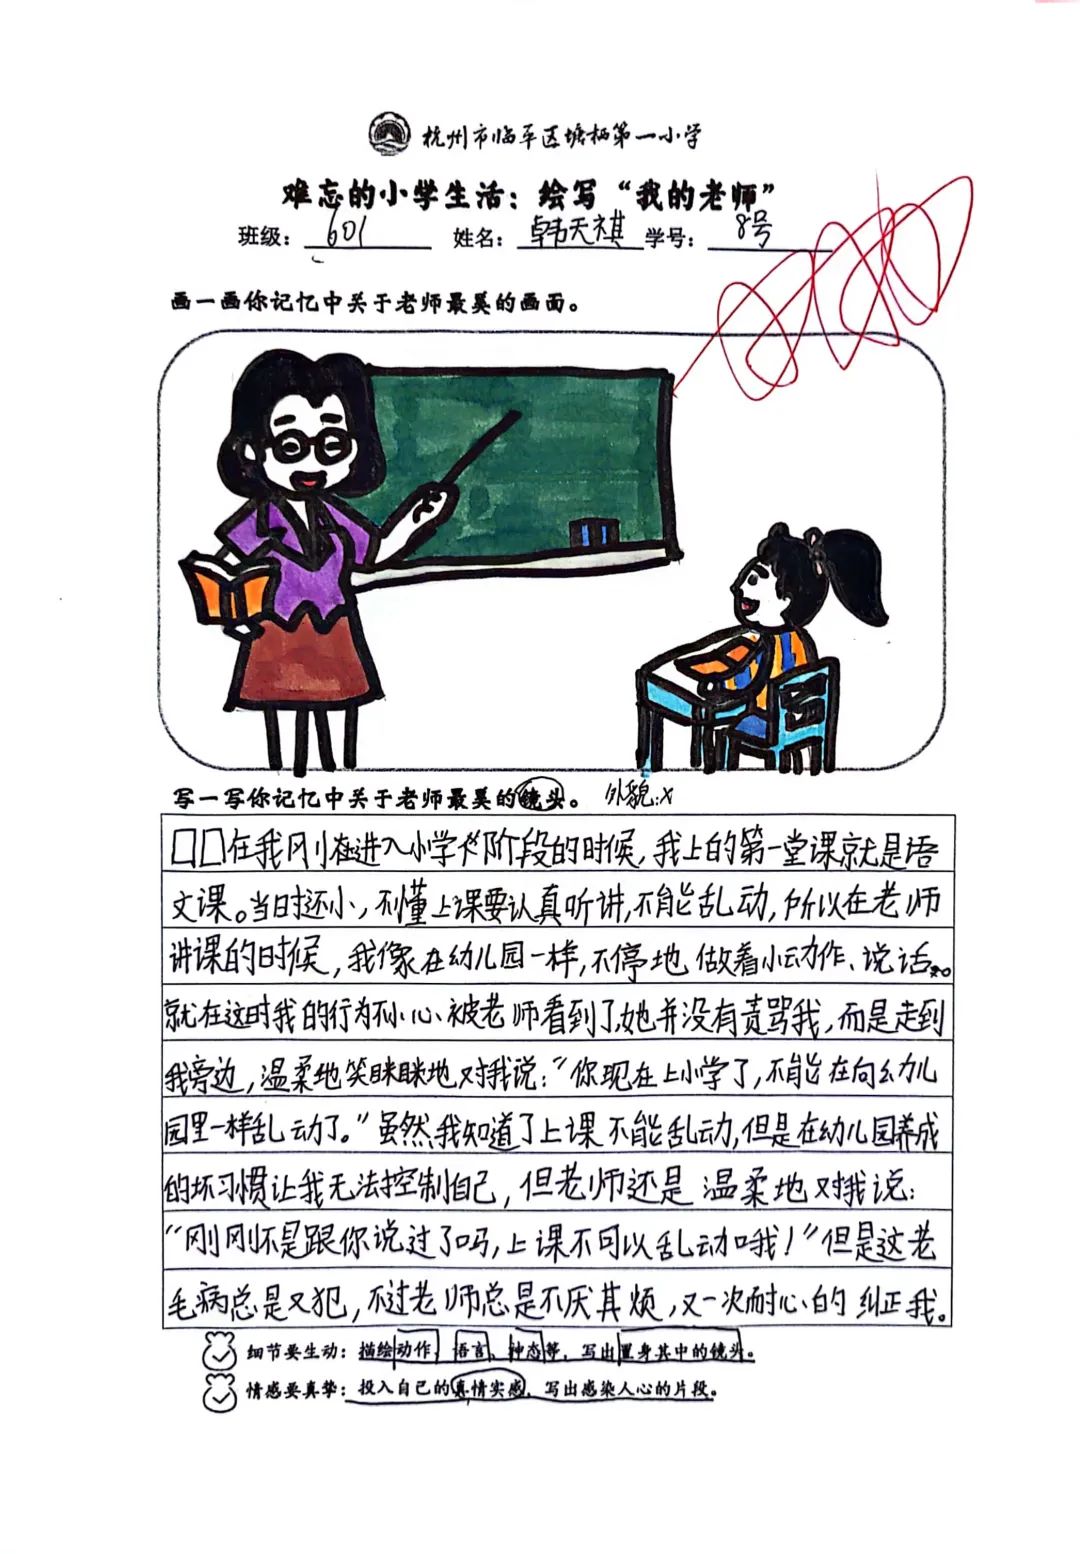 杭州市临平区塘栖第一小学
难忘的小学生活：绘写“我的老师”
班级：601 姓名：韩天祺 学号：8号
画一画你记忆中关于老师最美的画面。
写一写你记忆中关于老师最美的镜头。 外貌:x
在我刚在进入小学阶段的时候，我上的第一堂课就是语
文课。当时还小，不懂上课要认真听讲，不能乱动，所以在老师
讲课的时候，我像在幼儿园一样，不停地做着小动作、说话。
就在这时我的行为不小心被老师看到了，她并没有责骂我，而是走到
我旁边，温柔地笑眯眯地对我说：“你现在上小学了，不能在向幼儿
园里一样乱动了。”虽然我知道了上课不能乱动，但是在幼儿园养成
的坏习惯让我无法控制自己，但老师还是温柔地对我说：
“刚刚不是跟你说过了吗，上课不可以乱动哦！”但是这老
毛病总是又犯，不过老师总是不厌其烦，又一次耐心的纠正我。
细节要生动：描绘动作、语言、神态等，写出置身其中的镜头。
情感要真挚：投入自己的真情实感，写出感染人心的片段。